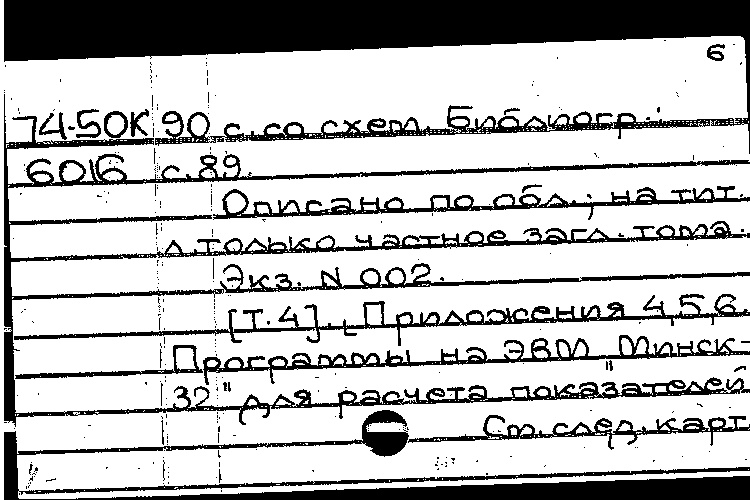 6
74-50К 90 с. со схем. Библиогр.:
6016 с. 89.
Описано по обл.; на тит.
л. только частное загл. тома.
Экз. N 002.
[Т. 4]. Приложения 4,5,6.
Программы на ЭВМ "Минск-
32" для расчета показателей
См. след. карт.